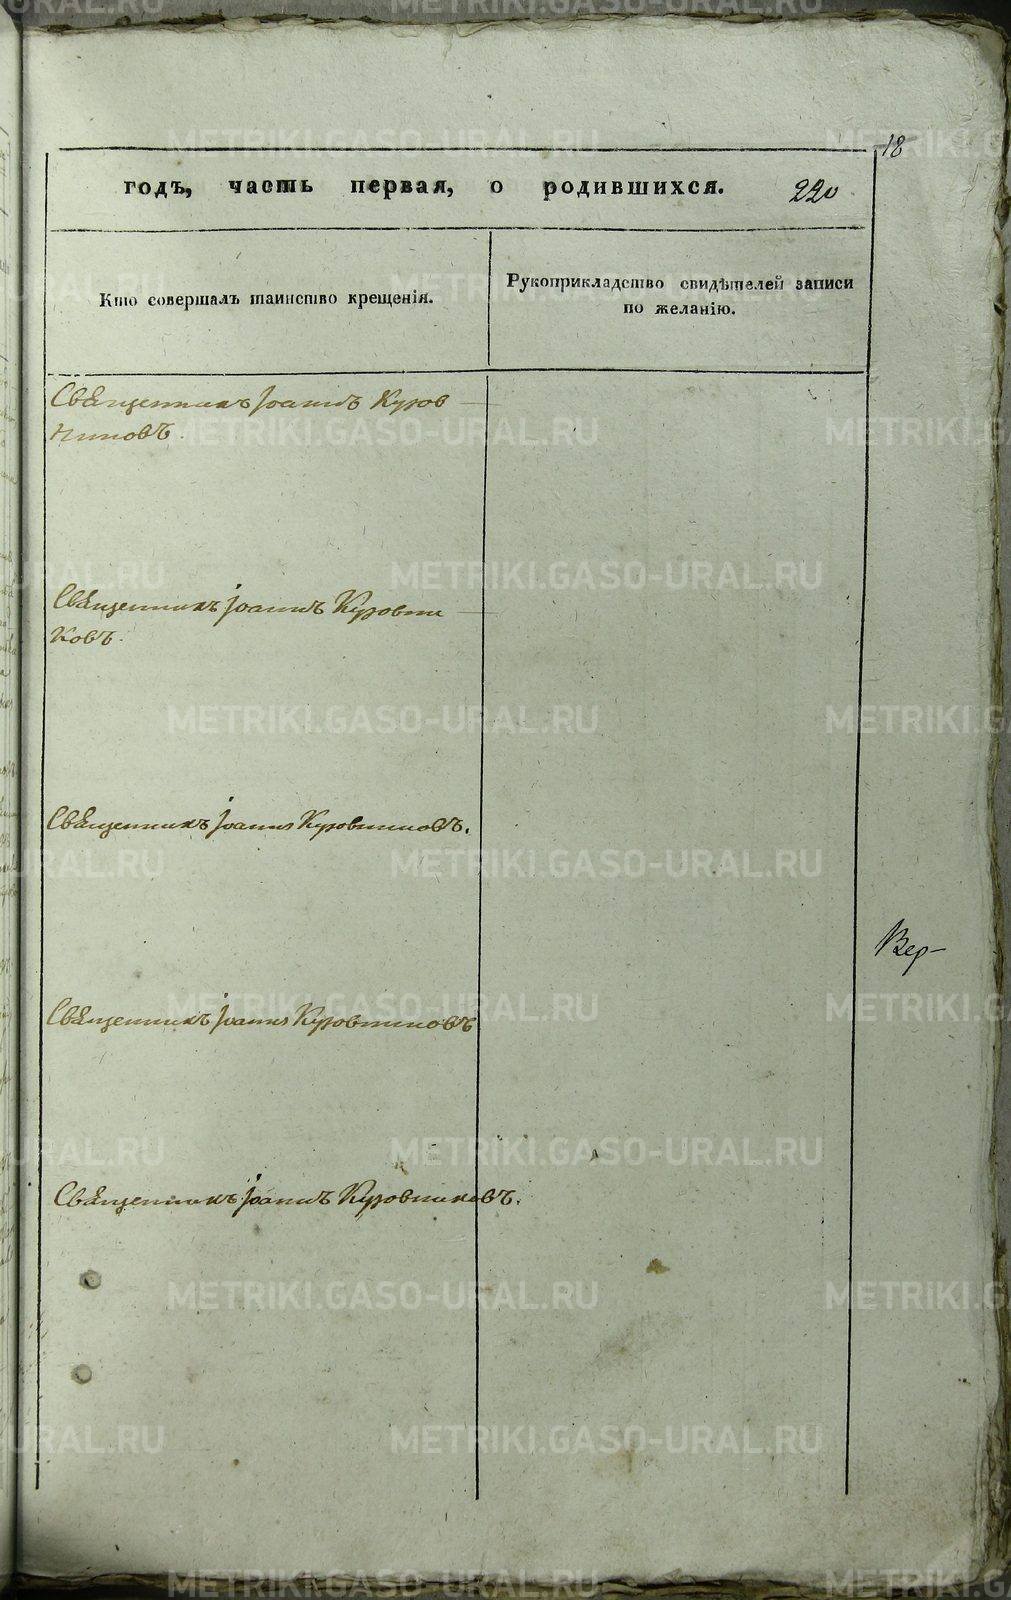 18
годъ, часть первая, о родившихся. 220
Кто совершалъ таинство крещенія.
Рукоприкладство свидѣтелей записи
по желанію.
Священникъ Іоаннъ Куров
никовъ.
Священникъ Іоаннъ Куровни
ковъ.
Священникъ Іоаннъ Куровниковъ.
Вер-
Священникъ Іоаннъ Куровниковъ
Священникъ Іоаннъ Куровниковъ.
METRIKI.GASO-URAL.RU